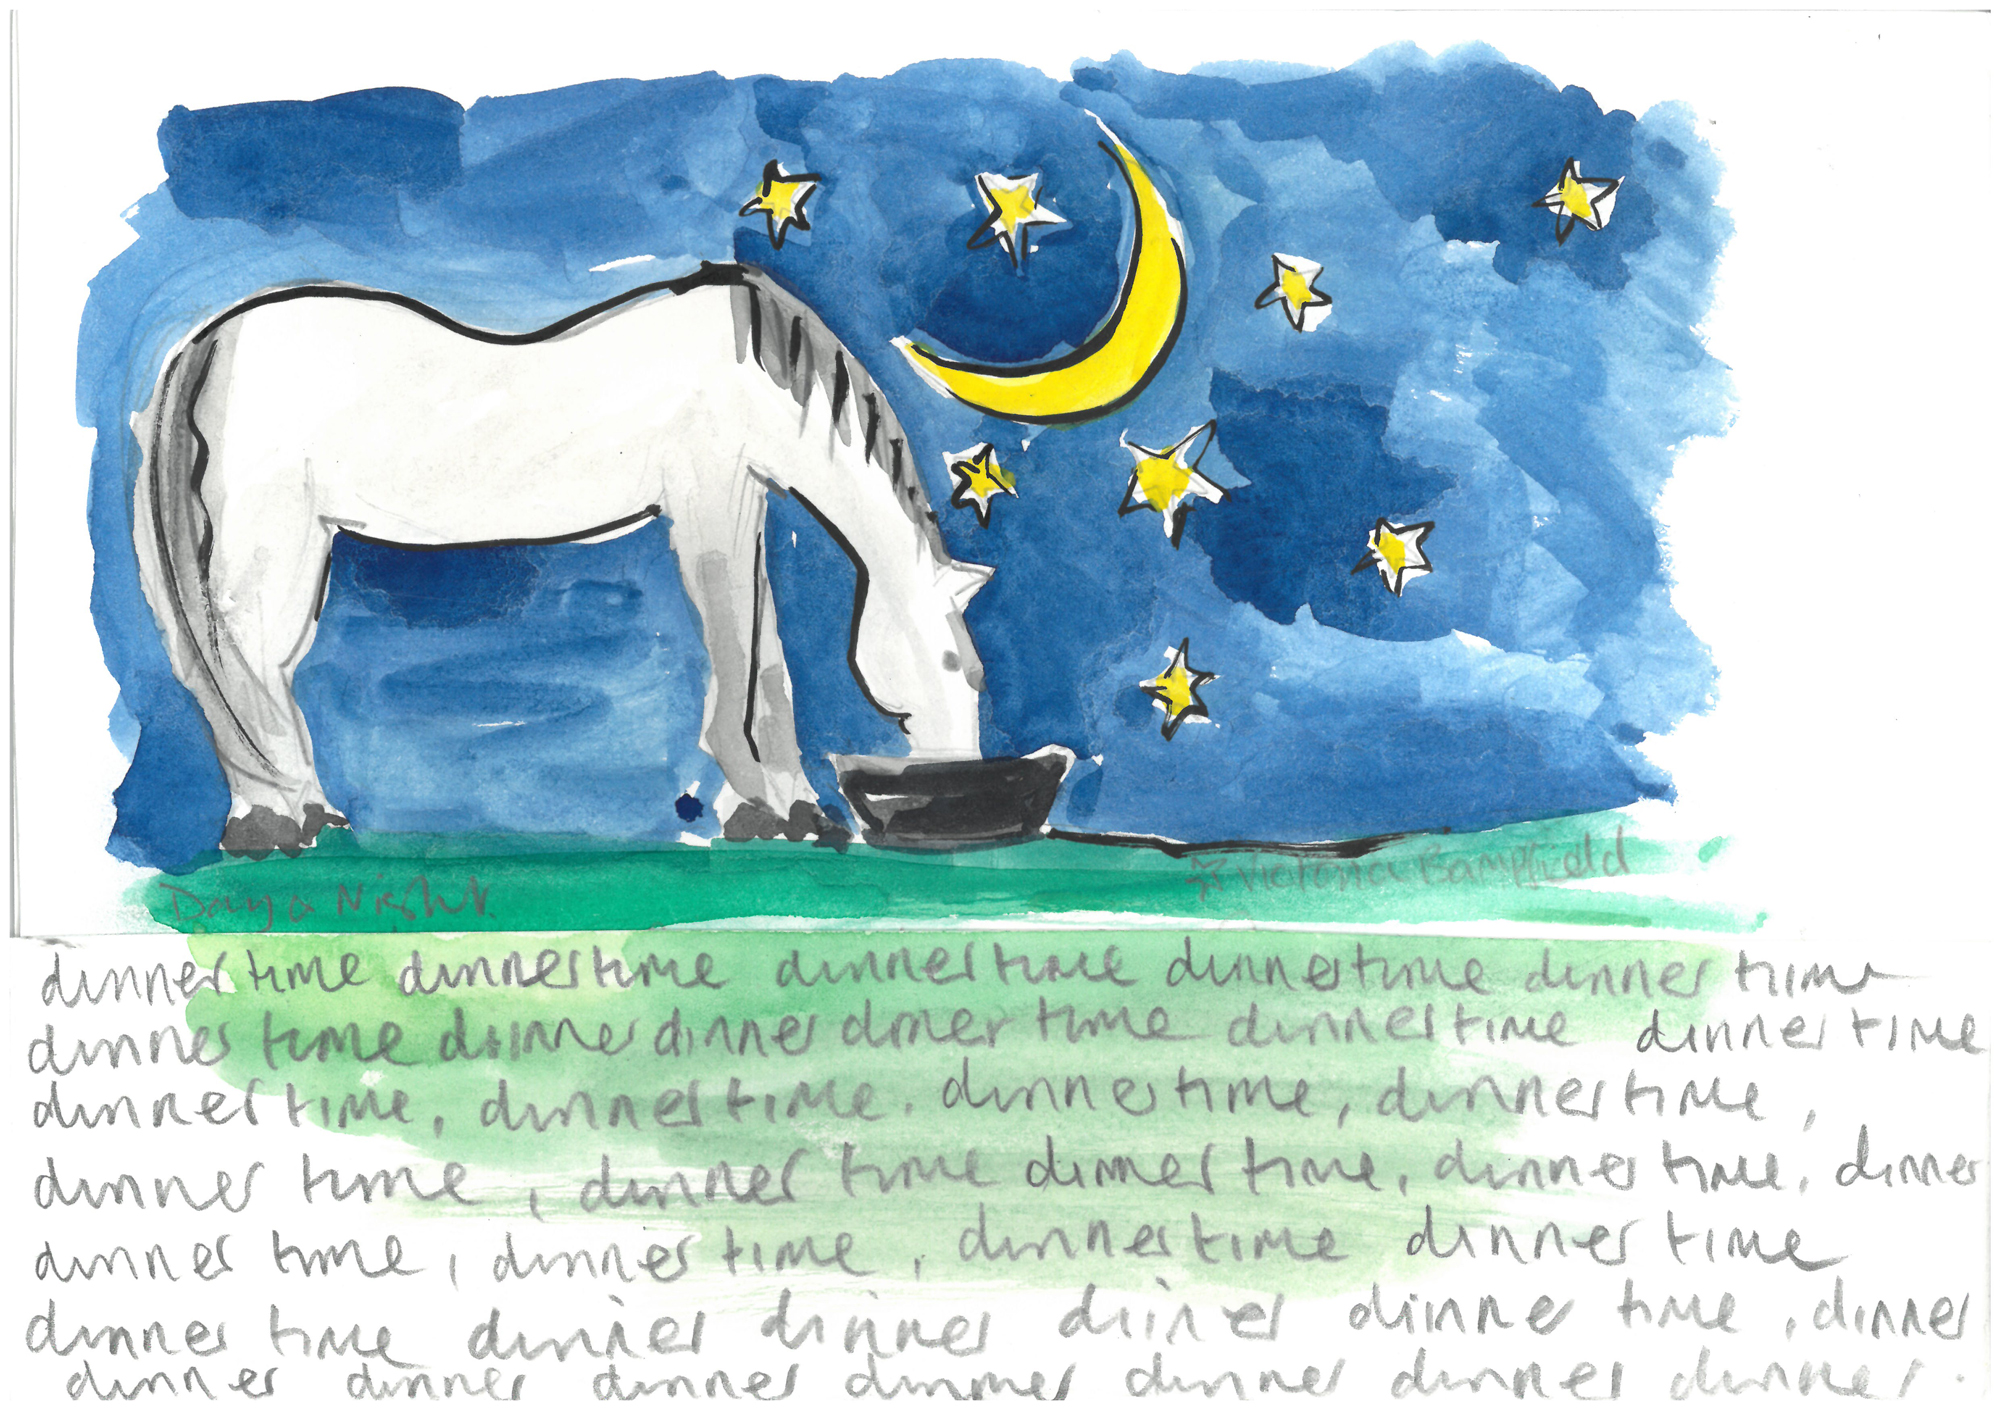 Day & Night.
☆ Victoria Bampfield
dinner time dinnertime dinnertime dinnertime dinner time
dinner time dinner dinner dinner time dinnertime dinner time
dinnertime, dinnertime. dinnertime, dinnertime,
dinner time, dinner time dinner time, dinner time, dinner
dinner time, dinner time, dinnertime dinner time
dinner time dinner dinner dinner dinner time, dinner
dinner dinner dinner dinner dinner dinner dinner.